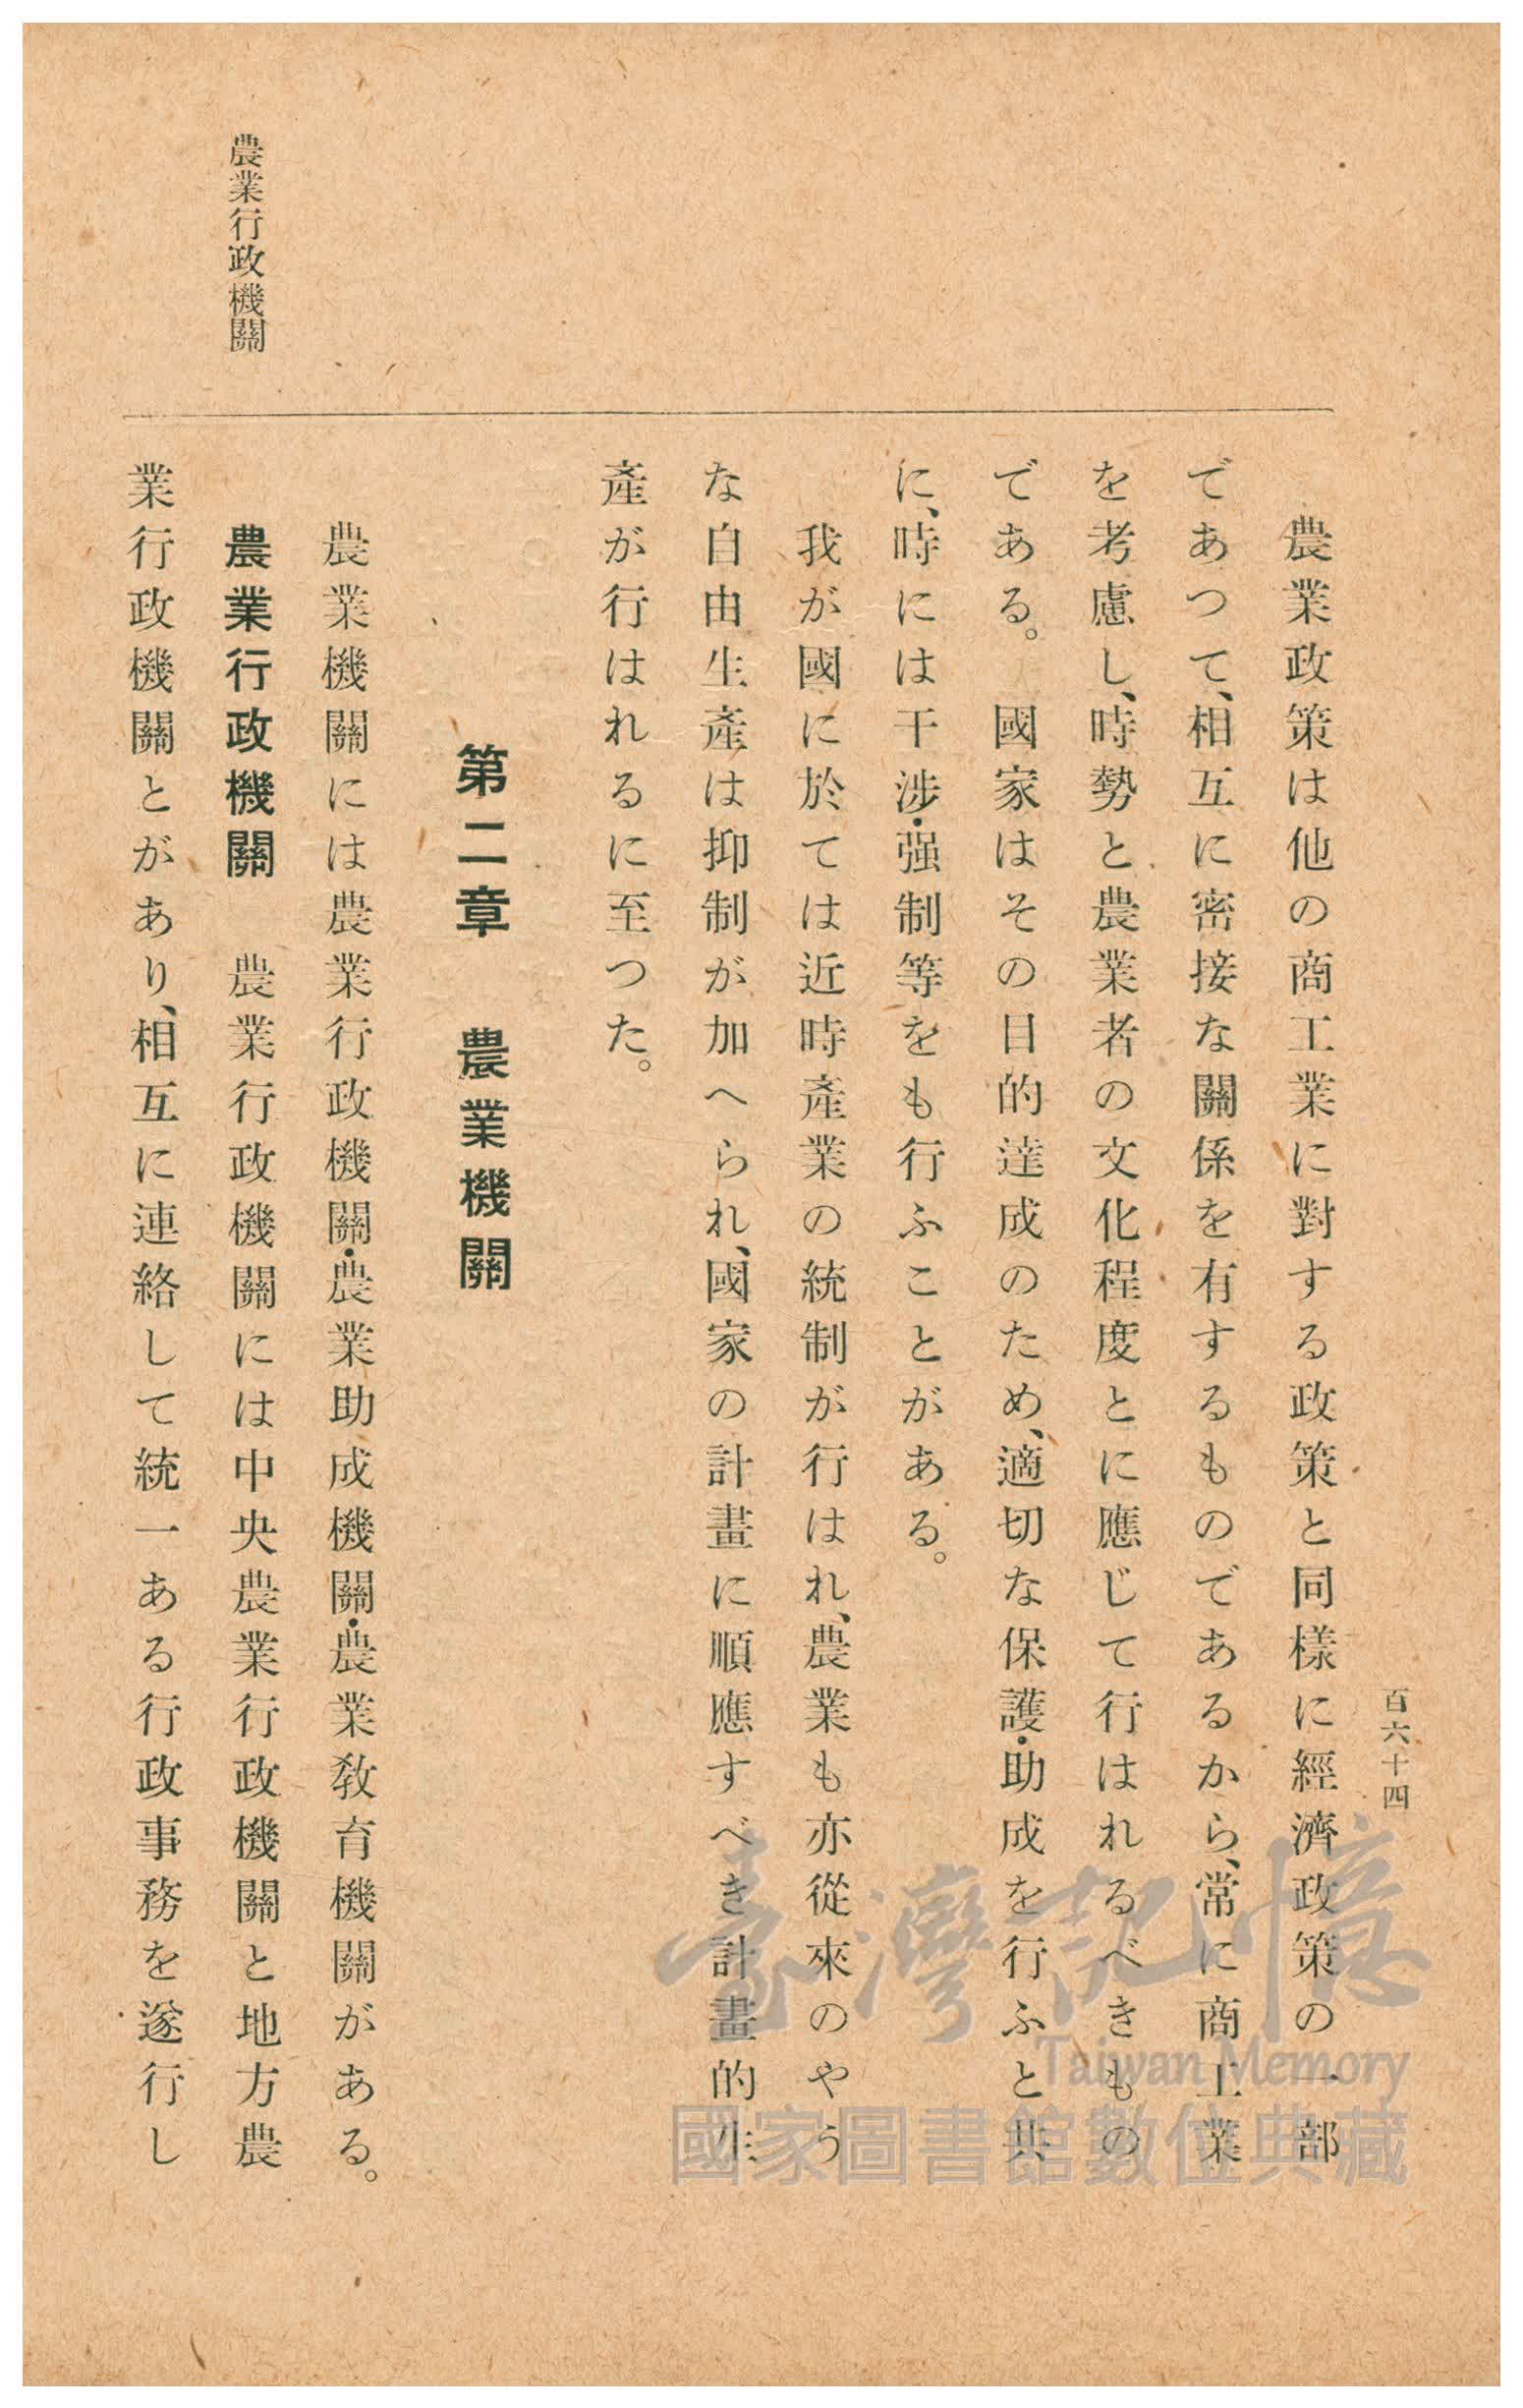 百六十四
農業政策は他の商工業に對する政策と同樣に經濟政策の一部
であつて、相互に密接な關係を有するものであるから、常に商工業
を考慮し、時勢と農業者の文化程度とに應じて行はれるべきもの
である。　國家はその目的達成のため、適切な保護・助成を行ふと共
に、時には干涉・强制等をも行ふことがある。
我が國に於ては近時產業の統制が行はれ、農業も亦從來のやう
な自由生產は抑制が加へられ、國家の計畫に順應すべき計畫的生
產が行はれるに至つた。
第二章　農業機關
農業機關には農業行政機關・農業助成機關・農業敎育機關がある。
農業行政機關
農業行政機關　農業行政機關には中央農業行政機關と地方農
業行政機關とがあり、相互に連絡して統一ある行政事務を遂行し
臺灣記憶
Taiwan Memory
國家圖書館數位典藏